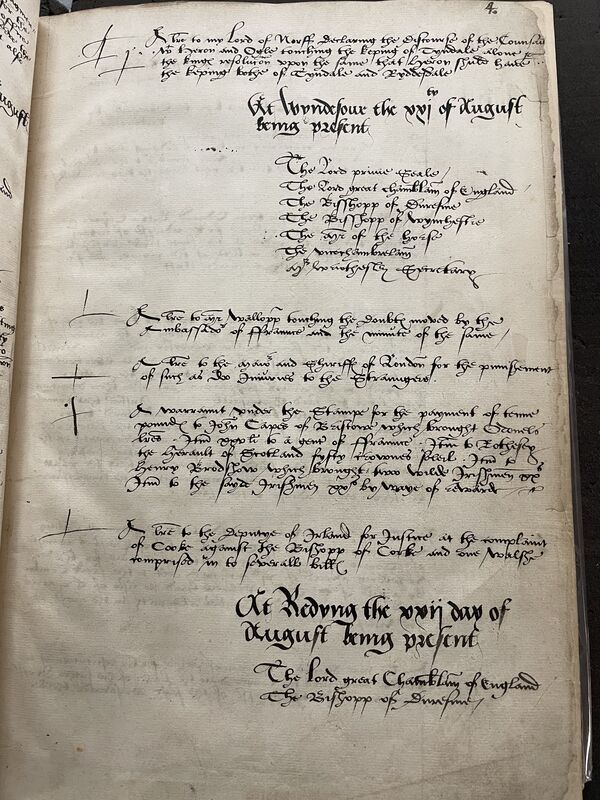 4.
A lrē to my Lord of Norff declaring the discourse of the Counsail
to Heron and Ogle touching the keping of Tyndale alone
the kings resolution upon the same that Heron shuld have
the keping bothe of Tyndale and Ryddesdale
At Wyndesour the xxi ty of August
being present
The Lord privie Seale
The Lord great chamblain of England
The Bisshopp of Duresme
The Bisshopp of Wynchestre
The mr of the horse
The vicechambrelain
Mr Wriothesley Secretary
A lrē to mr Wallopp touching the doubte moved by the
Ambassadr of ffraunce and the minute of the same
A lrē to the maior and Shriff of London for the punissement
of such as do Iniuries to the Straungers
A warraunt under the Stampe for the payment of tenne
pound to John Capes of Bristowe which brought
lrēs . Itm to a gent of ffraunce . Itm to Rothesey
the herault of Scotland fyfty crownes . Itm to
Henry Bradshow which brought two wilde Irisshmen xxs
Itm to the sayde Irisshmen xxs by waye of reward
A lrē to the deputye of Irland for Justice at the complaint
of Cooke against the Bisshopp of Corke and one Walshe
comprised in to severall bill
At Redyng the xxij day of
August being present
The Lord great Chamblain of England
The Bisshopp of Duresme